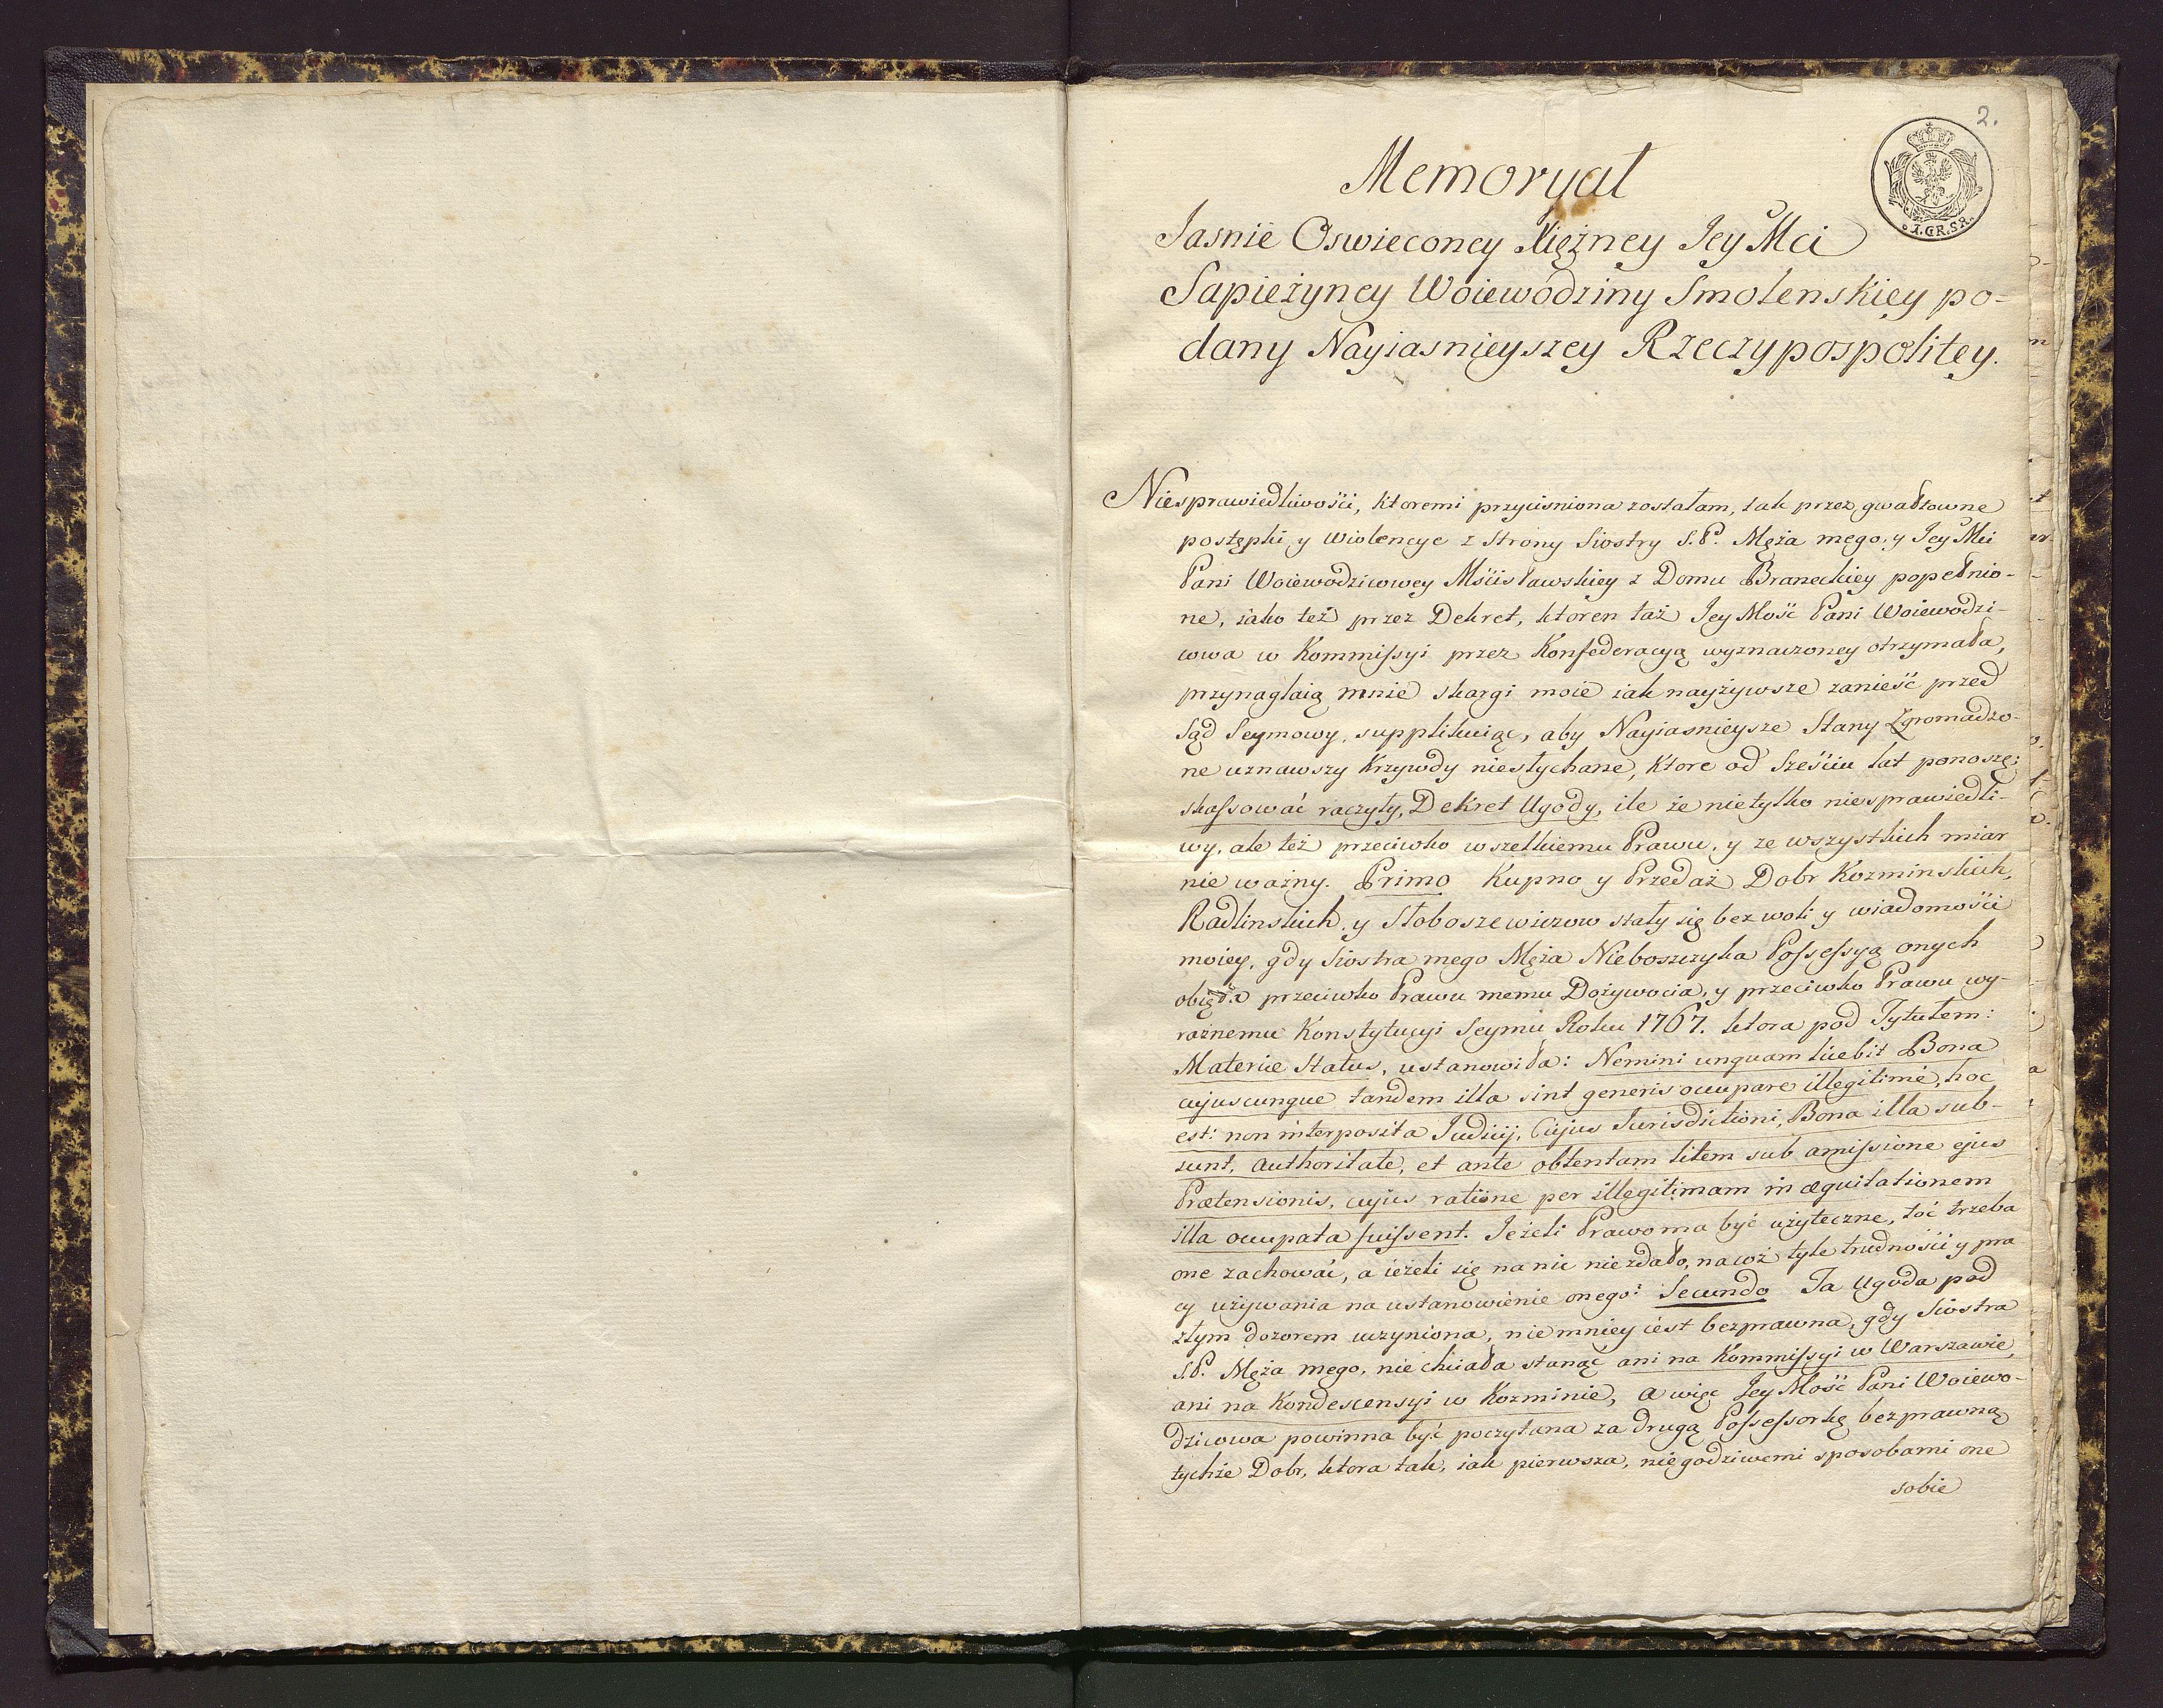 2.
I.GR.SR.
Memoryał
Jasnie Oswieconey Xiężney Jey Mci
Sapieżyney Woiewodziny Smolenskiey po-
dany Nayiasnieyszey Rzeczypospolitey.
Niesprawiedliwości, ktoremi przyciśniona zostałam, tak przez gwałtowne
postępki y wiolencye z Strony Siostry S. P. Męża mego, y Jey Mci
Pani Woiewodzicowey Mścisławskiey z Domu Braneckiey popełnio-
ne, iako też przez Dekret, ktoren taż Jey Mość Pani Woiewodzi-
cowa w Kommissyi przez Konfederacyą wyznaczoney otrzymała,
przynaglaią mnie skargi moie iak nayżywsze zanieść przed
Sąd Seymowy, supplikuiąc, aby Nayiasnieysze Stany Zgromadzo-
ne uznawszy Krzywdy niesłychane, Ktore od Sześciu lat ponoszę;
skassować raczyły, Dekret Ugody, ile że nietylko niesprawiedli-
wy, ale też przeciwko wszelkiemu Prawu, y ze wszystkich miar
nie ważny. Primo Kupno y Przedaż Dobr Kozminskich,
Radlinskich, y Słoboszewiczow stały się bez woli y wiadomości
moiey, gdy Siostra mego Męża Nieboszczyka Possessyą onych
obięła przeciwko Prawu memu Dożywocia, y przeciwko Prawu wy-
raźnemu Konstytucyi Seymu Roku 1767. ktora pod Tytułem:
Materiæ Status, ustanowiła: Nemini unquam licebit Bona
cujuscunque tandem illa sint generis occupare illegitimè, hoc
est: non interposita Judicij, Cujus Jurisdictioni, Bona illa sub-
sunt, authoritate, et ante obtentam litem sub amissione ejus
Prætensionis, cujus ratione per illegitimam inæquitationem
illa occupata fuissent. Jeżeli Prawo ma być użyteczne, toć trzeba
one zachować, a ieżeli się na nic nie zdało, na coż tyle trudności y pra
cy używania na ustanowienie onego? Secundo Ta Ugoda pod
złym dozorem uczyniona, nie mniey iest bezprawna, gdy Siostra
S. P. Męża mego, nie chciała stanąć ani na Kommissyi w Warszawie,
ani na Kondescensyi w Kozminie, a więc Jey Mość Pani Woiewo-
dzicowa powinna być poczytana za drugą Possessorkę bezprawną
tychże Dobr, ktora tak, iak pierwsza, niegodziwemi sposobami one
sobie